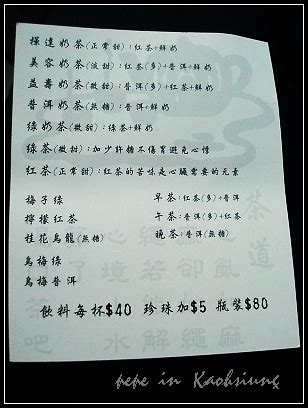 樸達奶茶(正常甜):紅茶+鮮奶
美容奶茶(淡甜):紅茶(多)+普洱+鮮奶
益壽奶茶(微甜):普洱(多)+紅茶+鮮奶
普洱奶茶(無糖):普洱+鮮奶
綠奶茶(微甜):綠茶+鮮奶
綠茶(微甜):加少許糖不傷胃避免心悸
紅茶(正常甜):紅茶的苦味是心臟需要的元素
梅子綠
檸檬紅茶
桂花烏龍(無糖)
烏梅綠
烏梅普洱
早茶:紅茶(多)+普洱
午茶:普洱(多)+紅茶
晚茶:普洱(無糖)
茶道
飲料每杯$40 珍珠加$5 瓶裝$80
pepe in Kaohsiung